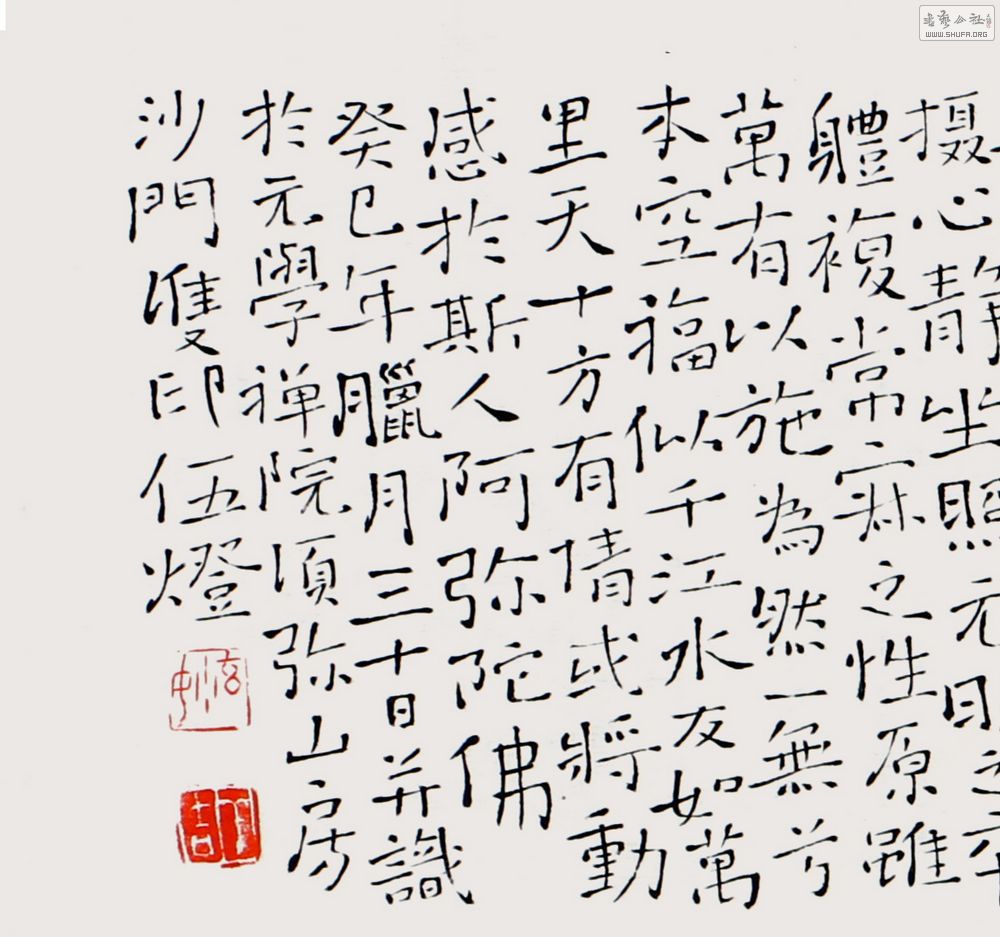 書藝公社
WWW.SHUFA.ORG
摄心静坐照元
軆複常寂之性原雖
萬有以施為然一無兮
本空福似千江水友如萬
里天十方有情或將動
感於斯人阿弥陀佛
癸巳年臘月三十日并識
於元學禅院須弥山房
沙門雙印伍燈